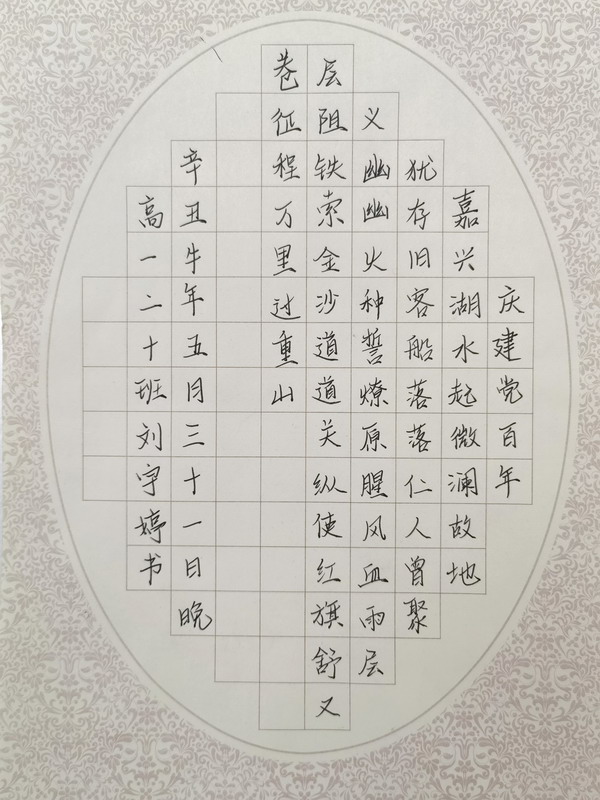 庆建党百年
嘉兴湖水起微澜故地
犹存旧客船落落仁人曾聚
义幽幽火种誓燎原腥风血雨层
层阻铁索金沙道道关纵使红旗舒又
卷征程万里过重山
辛丑牛年五月三十一日晚
高一二十班刘宇婷书